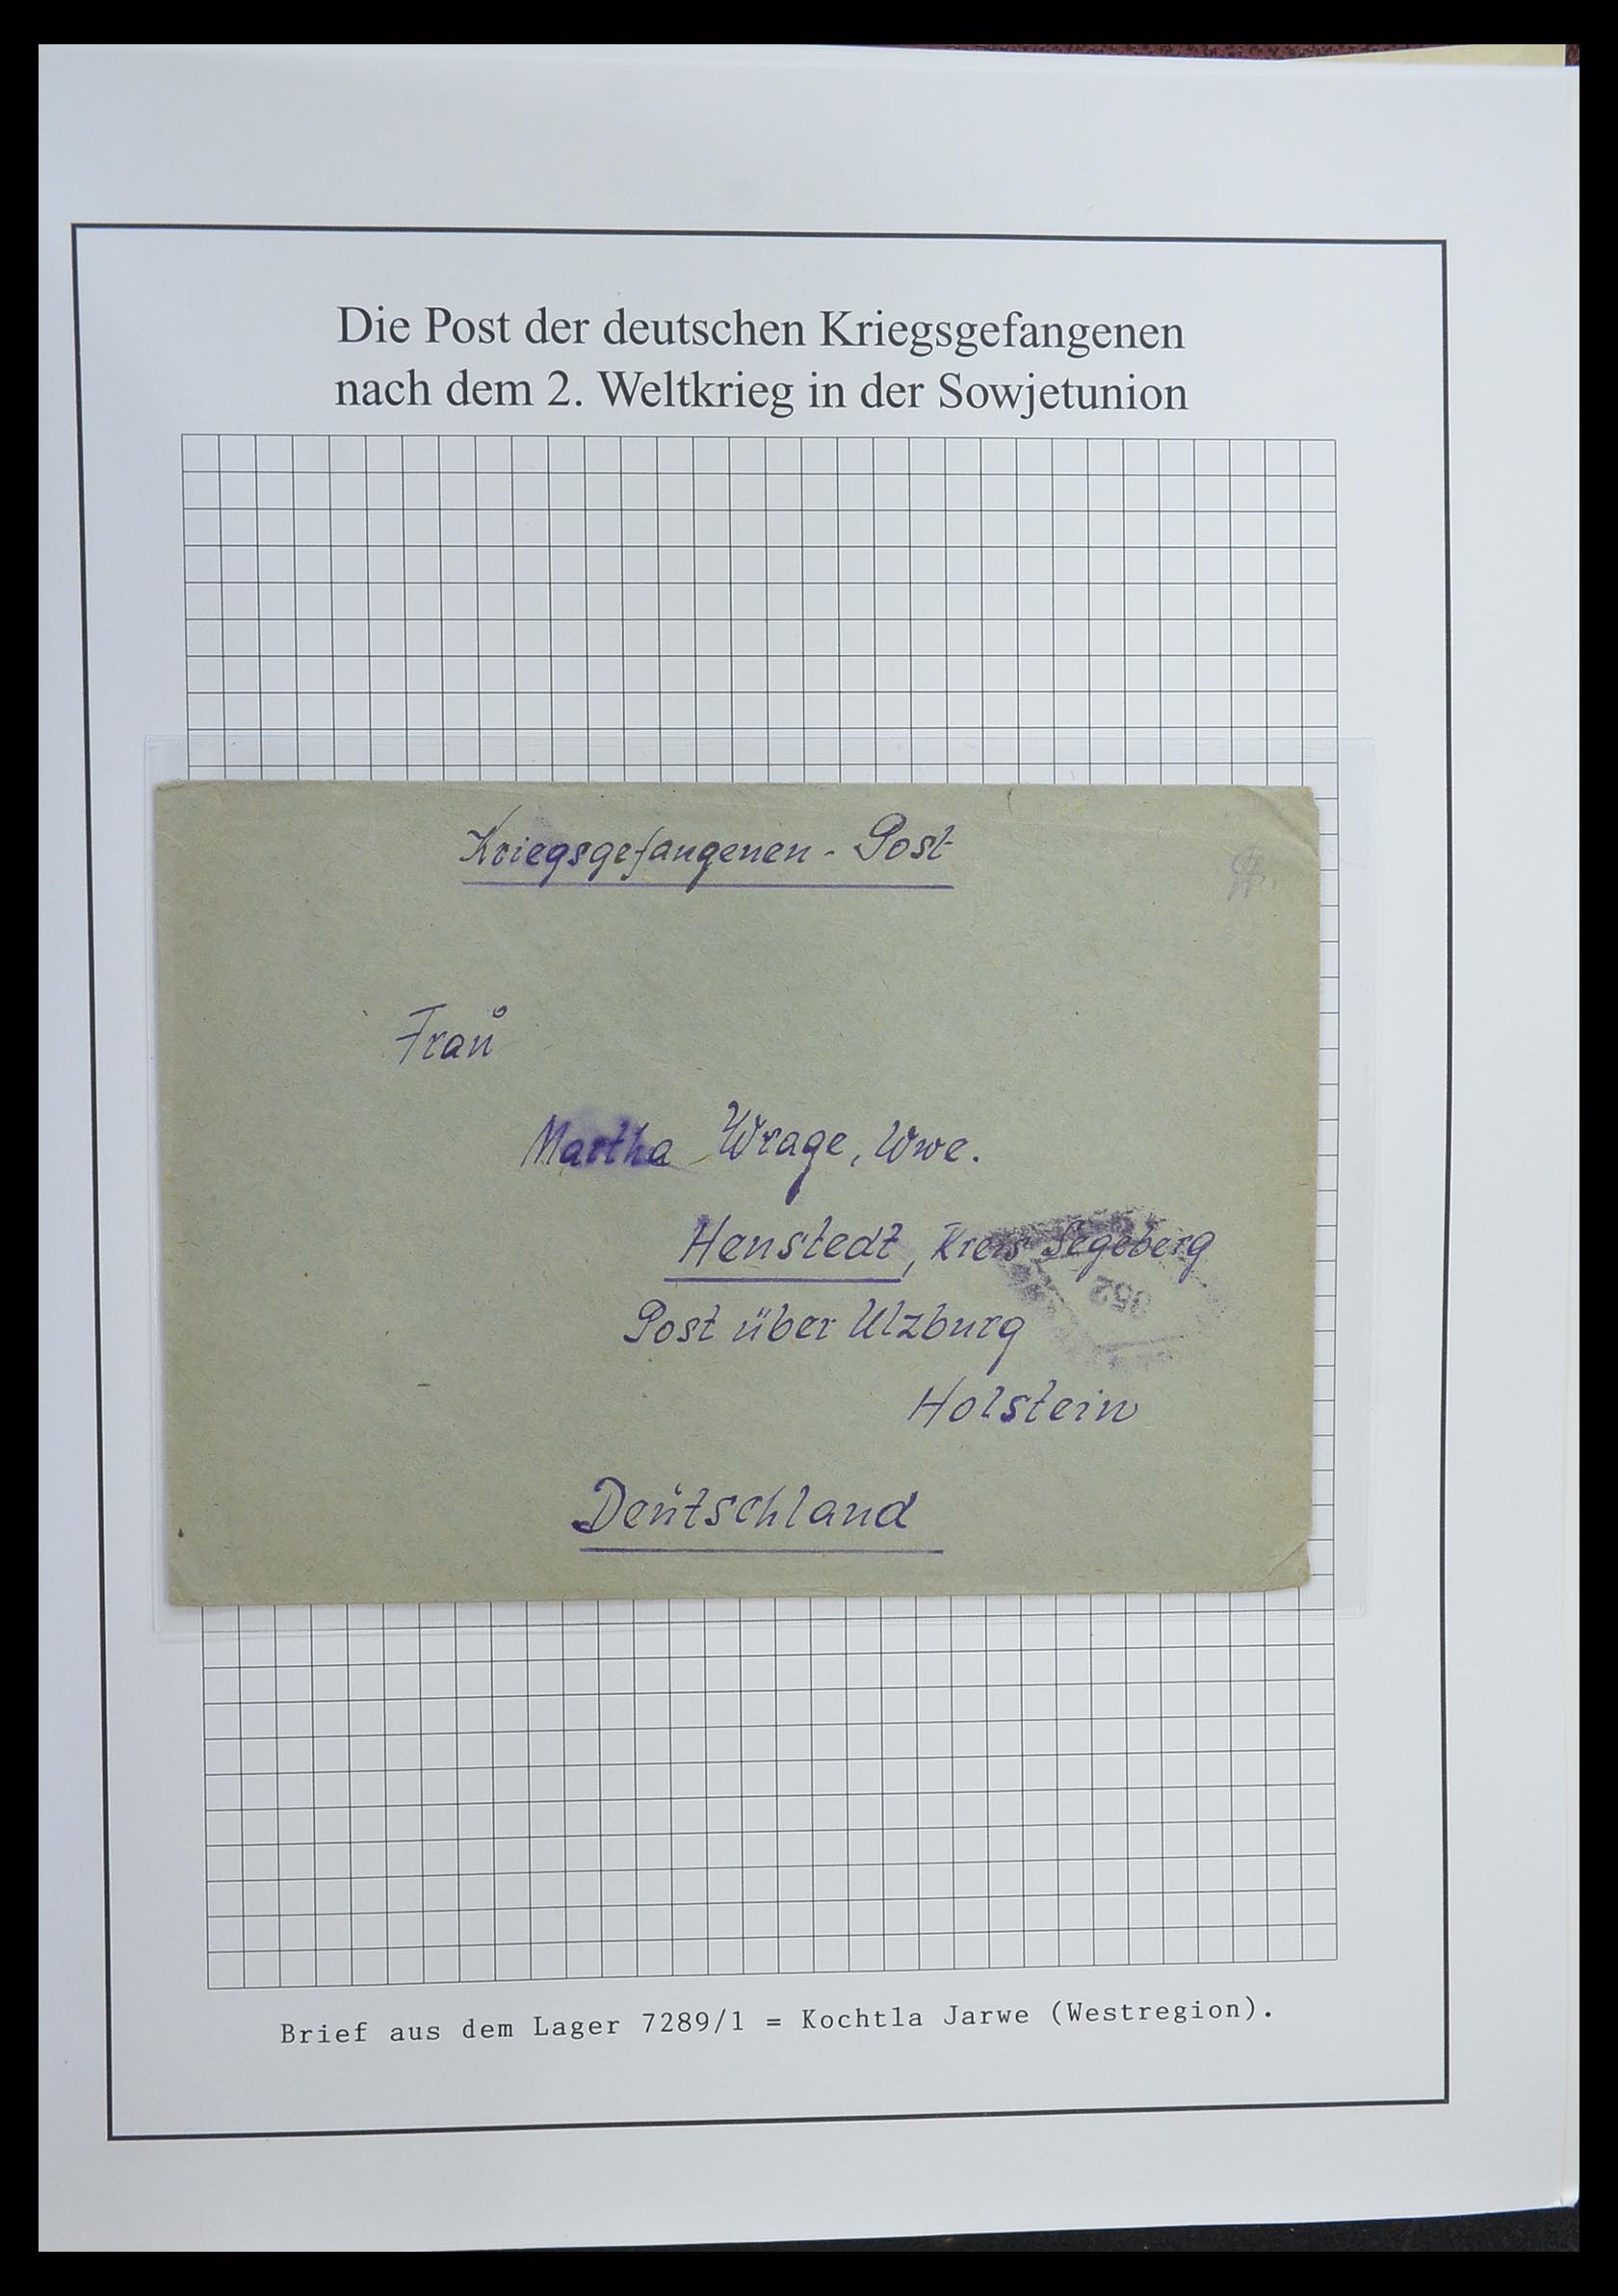 Die Post der deutschen Kriegsgefangenen
nach dem 2. Weltkrieg in der Sowjetunion
Kriegsgefangenen - Post
Frau
Martha Wrage, Wwe.
Henstedt, Kreis Segeberg
352
Post über Ulzburg
Holstein
Deutschland
Brief aus dem Lager 7289/1 = Kochtla Jarwe (Westregion).